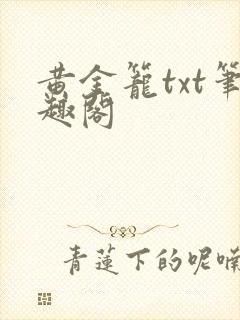 黄金籠txt筆
趣閣
青蓮下的呢喃